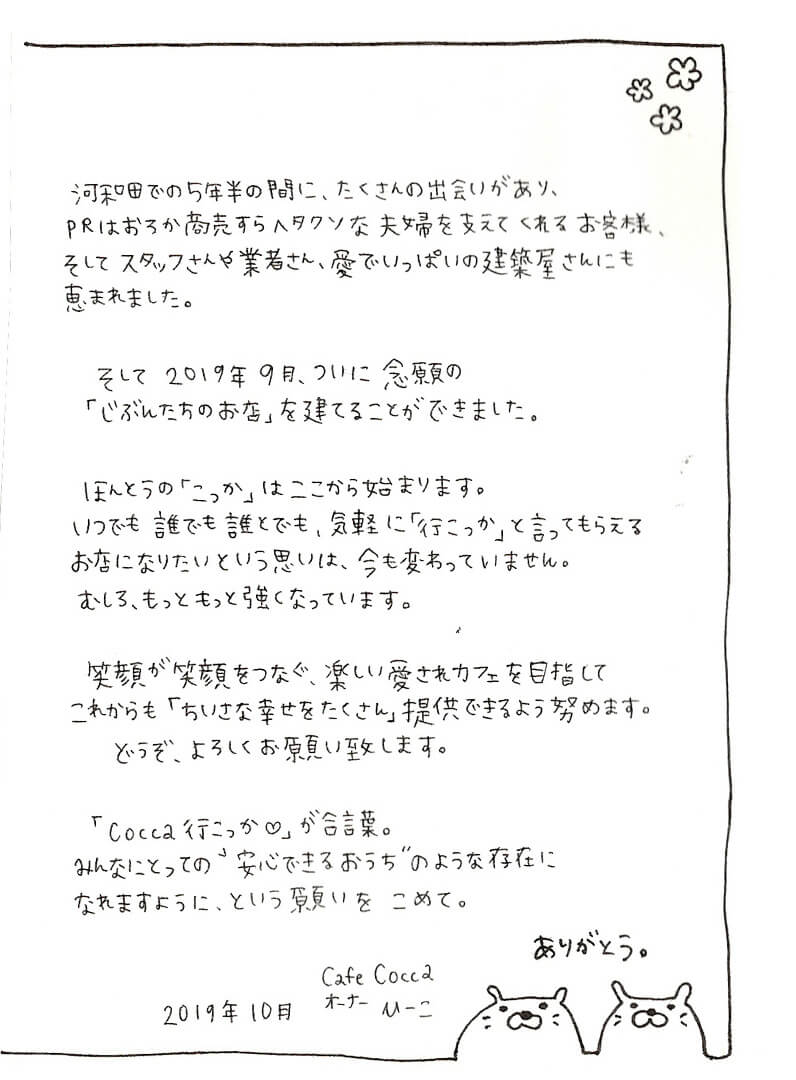 河和田での5年半の間に、たくさんの出会いがあり、
PRはおろか商売すらヘタクソな夫婦を支えてくれるお客様、
そしてスタッフさんや業者さん、愛でいっぱいの建築屋さんにも
恵まれました。
そして 2019年 9月、ついに 念願の
「じぶんたちのお店」を建てることができました。
ほんとうの「こっか」はここから始まります。
いつでも 誰でも 誰とでも、気軽に「行こっか」と言ってもらえる
お店になりたいという思いは、今も変わっていません。
むしろ、もっともっと強くなっています。
笑顔が笑顔をつなぐ、楽しい愛されカフェを目指して
これからも「ちいさな幸せをたくさん」提供できるよう努めます。
どうぞ、よろしくお願い致します。
「Cocca 行こっか♡」が合言葉。
みんなにとっての〝安心できるおうち〟のような存在に
なれますように、という願いを こめて。
ありがとう。
Cafe Cocca
2019年10月 オーナー ひーこ